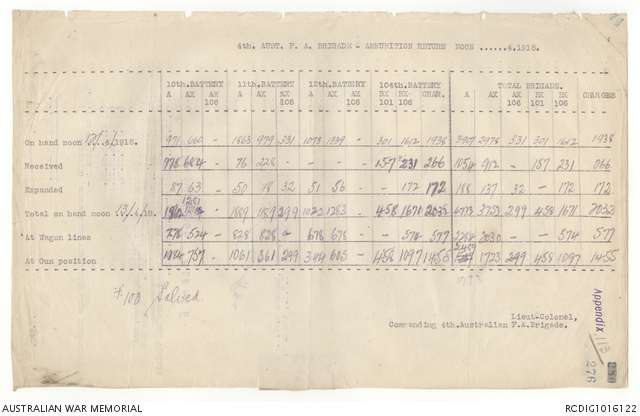 4th. AUST. F. A. BRIGADE - AMMUNITION RETURN NOON ......4.1918.
10th.BATTERY 11th.BATTERY 12th.BATTERY 104th.BATTERY TOTAL BRIGADE.
A AX AX 106 A AX AX 106 A AX AX 106 BX 101 BX 106 CHAR. A AX AX 106 BX 101 BX 106 CHARGES
On hand noon 12/4/1918. 971 660 - 1863 979 331 1073 1339 - 301 1612 1938 3907 2978 331 301 1612 1938
Received 978 684 - 76 228 - - - - 157 231 266 1054 912 - 157 231 266
Expended 87 63 - 50 18 32 51 56 - - 172 172 188 137 32 - 172 172
Total on hand noon 13/4/18. 1862 1281 - 1889 1189 299 1022 1283 - 458 1671 2032 4773 3753 299 458 1671 2032
At Wagon lines 778 524 - 828 828 - 678 678 - - 574 577 2284 2030 - - 574 577
At Gun position 1084 757 - 1061 361 299 344 605 - 458 1097 1455 2489 1723 299 458 1097 1455
* 100 Salved
Lieut-Colonel,
Commanding 4th.Australian F.A.Brigade.
Appendix 11B
276
AUSTRALIAN WAR MEMORIAL
RCDIG1016122